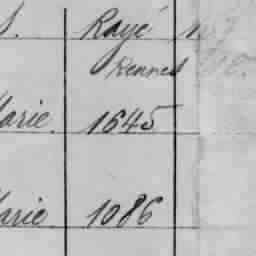 S. Rayé
Rennes
Marie. 1645
Marie 1086